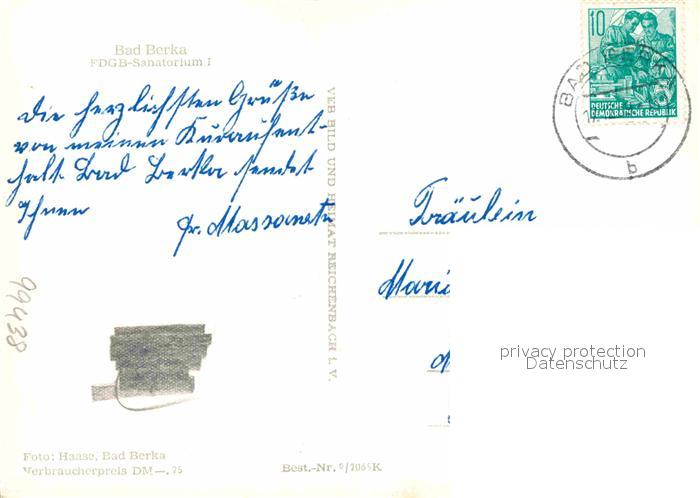 Bad Berka
FDGB-Sanatorium I
Die herzlichsten Grüße
von meinen Kuraufent-
halt Bad Berka sendet
Ihnen
Fr. Massanetz
VEB BILD UND HEIMAT REICHENBACH i. V.
10
DEUTSCHE
DEMOKRATISCHE REPUBLIK
BAD BERKA
b
Fräulein
Mari
privacy protection
Datenschutz
99438
Foto: Haase, Bad Berka
Verbraucherpreis DM —.25
Best.-Nr. 9/2065K